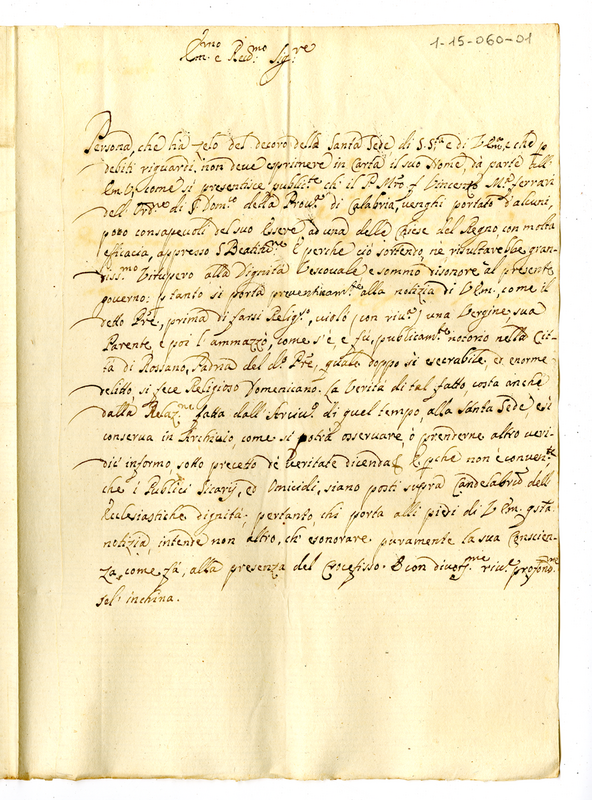 1-15-060-01
Em.mo e Rev.mo Sig.re
Persona, che ha zelo del decoro della Santa Sede di S. S.tà e di V. Em.a, e che p
debiti riguardi, non deve esprimere in Carta il suo Nome, dà parte all'
Em. V. come si presentice public.te ch' il P. Mtro f. Vincenzo M.a Ferrari
dell'Ord.ne di S. Dom.co della Prov.a di Calabria, venghi portato d'alcuni,
poco consapevoli del suo Essere ad una delle Chiese del Regno, con molta
efficacia, appresso S. Beatitud.ne E perche ciò sortendo, ne risultarebbe gran-
diss.mo Vitupero alla Dignità Vescovale e sommo disonore al presente
governo: p tanto si porta preventivam.te alla notizia di V. Em., come il
detto P.re, prima di farsi Relig.o, violò (con riv.a) una Vergine, sua
Parente, e poi l'ammazzò, come s'è, e fù, publicam.te notorio nella Cit
tà di Rossano, Padria del d.o P.re, quale doppo sì esecrabile, ed enorme
delitto, si fece Religioso Domenicano. La Verità di tal fatto costa anche
dalla Relaz.ne fatta dall'Arciv.o di quel tempo, alla Santa Sede, e si
conserva in Archivio, come si potrà osservare, ò prenderne altro veri-
dic' informo, sotto precetto de veritate dicenda. E pche non è conven.te
che i Publici Sicarij, ed Omicidi, siano posti supra Candelabrum dell'
Ecclesiastiche dignità; pertanto, chi porta alli piedi di V. Em. q.sta
notizia, intende non altro, ch' esonorare puramente la sua Conscien-
za, come fà, alla presenza del Crocefisso. E con divotiss.me riv.e profond.me
sel' inchina.